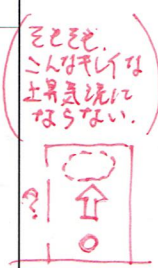 そもそも、
こんなキレイな
上昇気流に
ならない.
?